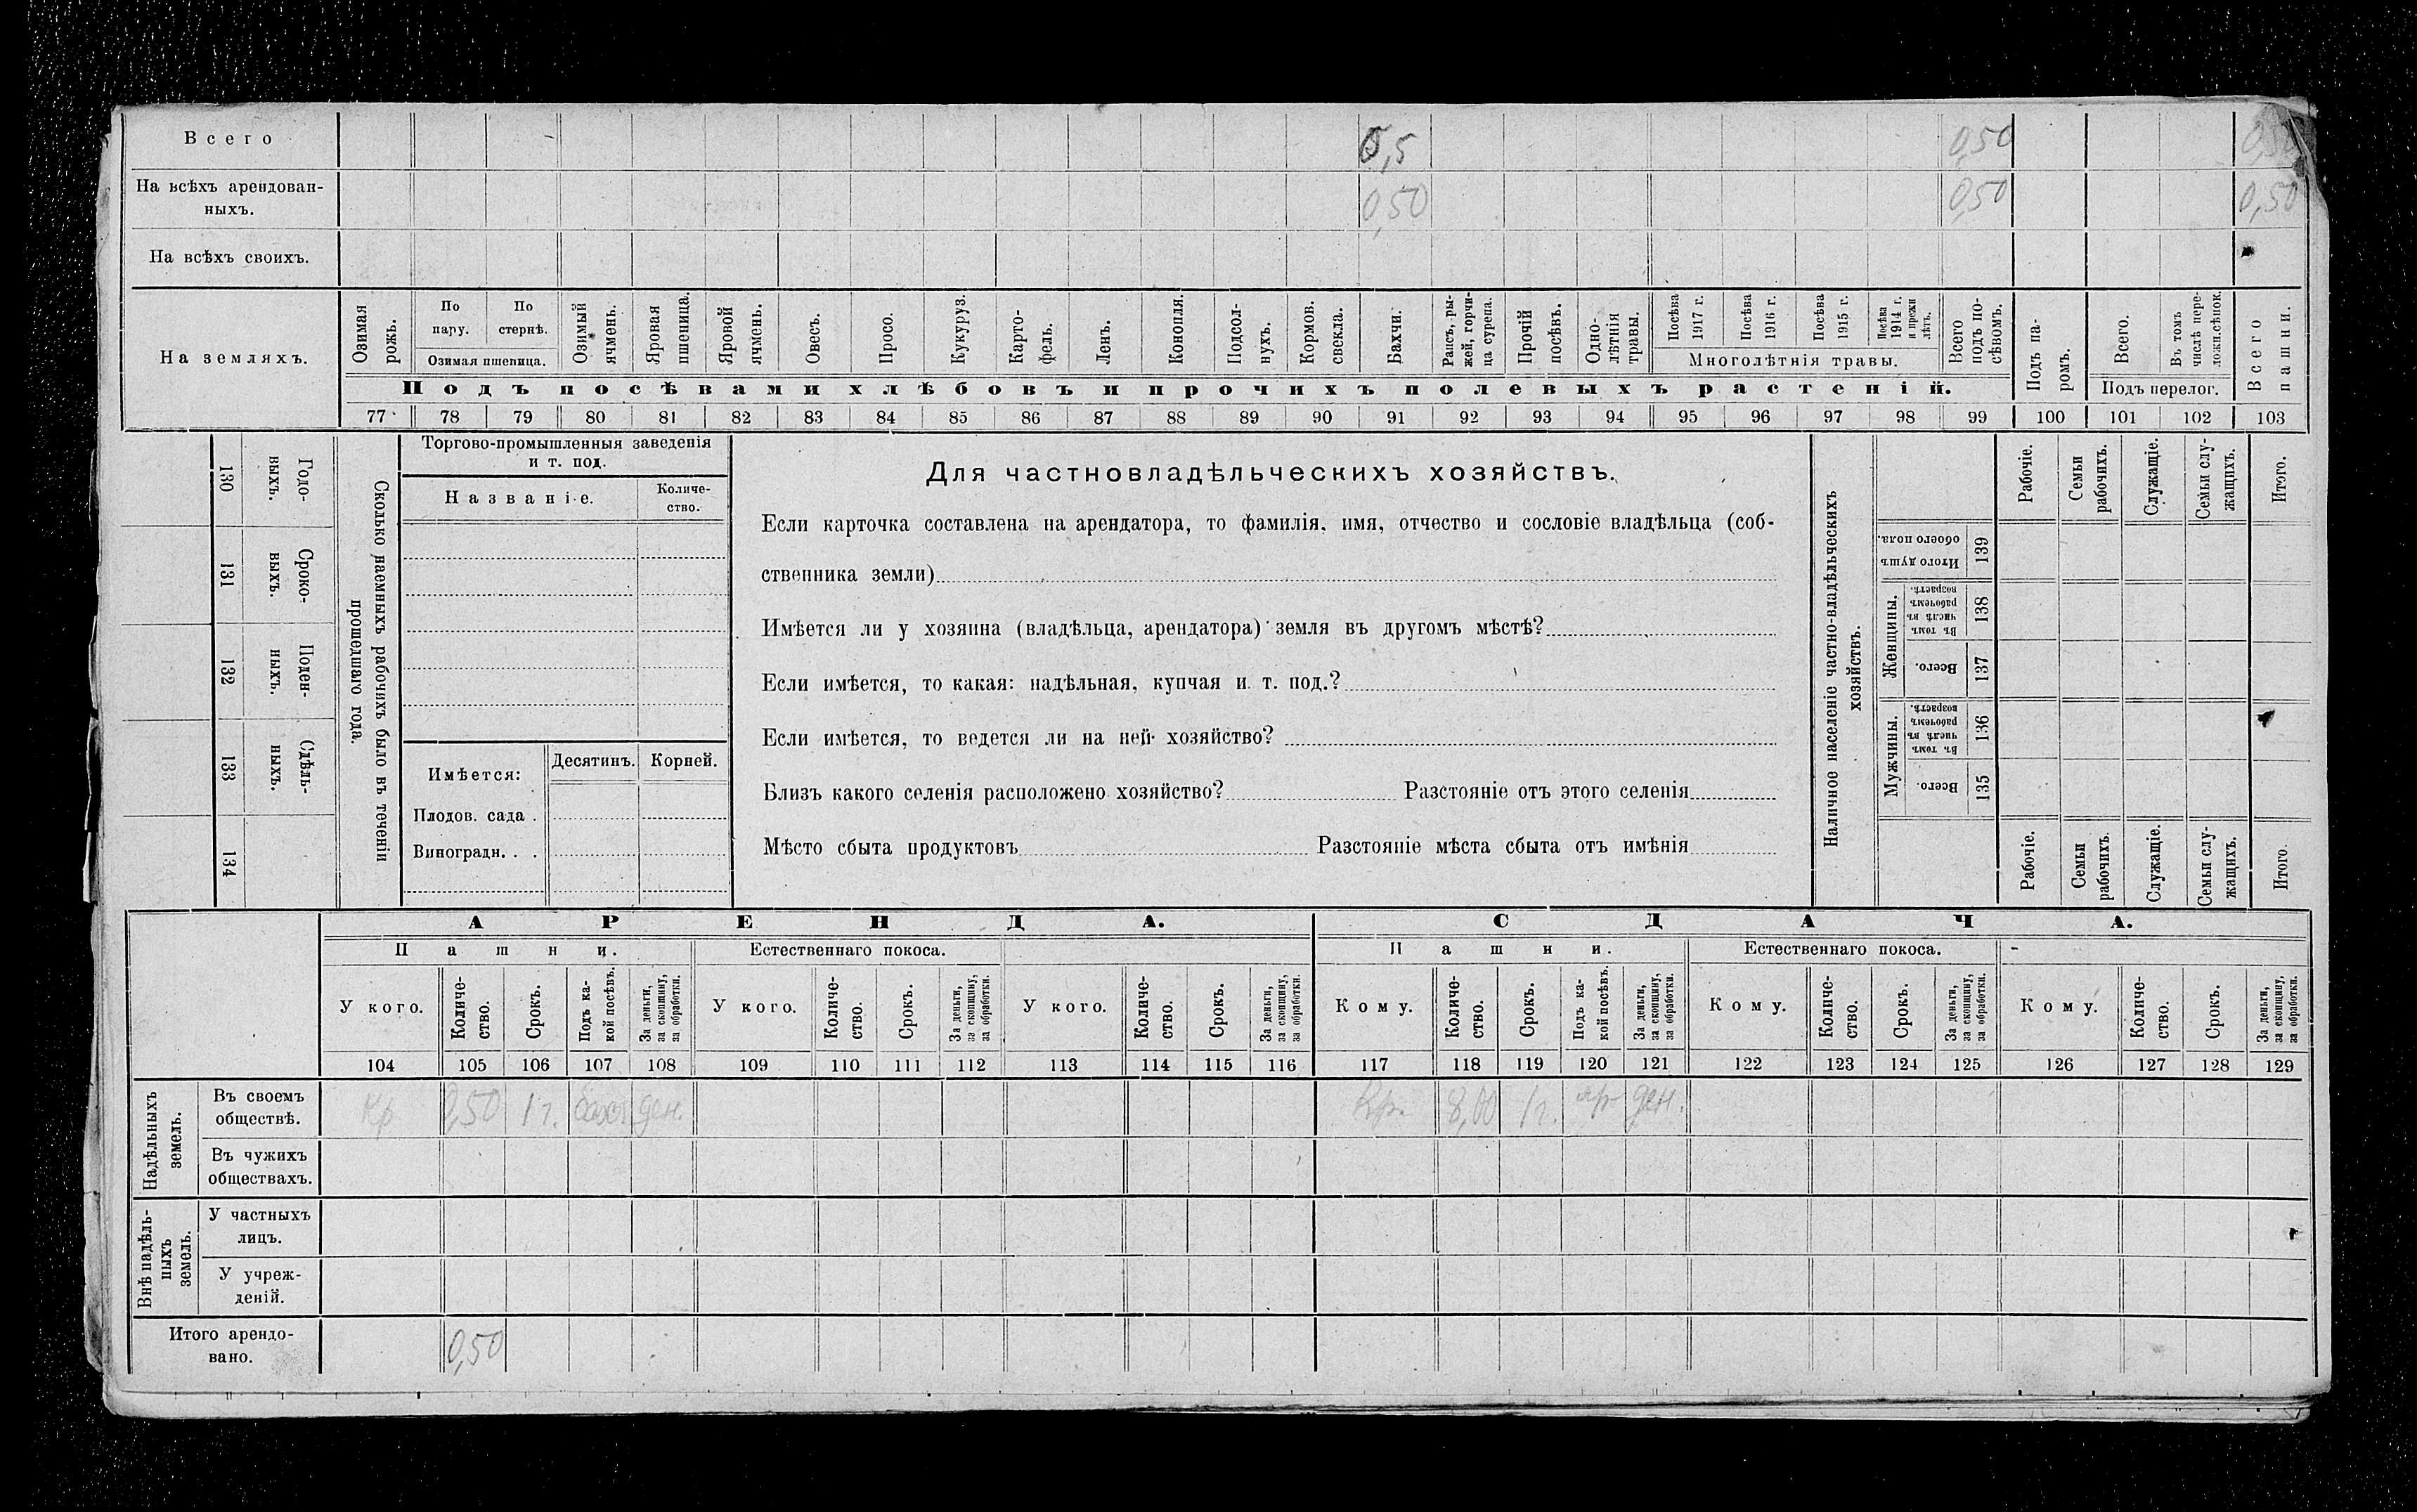 Всего 0,5 0,50 0,50
На всѣхъ арендован-
ныхъ. 0,50 0,50 0,50
На всѣхъ своихъ.
На земляхъ.
Озимая рожь.
По пару.
По стернѣ.
Озимая пшеница.
Озимый ячмень.
Яровая пшеница.
Яровой ячмень.
Овесъ.
Просо.
Кукуруз.
Карто-
фель.
Ленъ.
Конопля.
Подсол-
нухъ.
Кормов.
свекла.
Бахчи.
Рапсъ, ры-
жей, горчи-
ца сурепа.
Прочій
посѣвъ.
Одно-
лѣтнія
травы.
Посѣва
1917 г.
Посѣва
1916 г.
Посѣва
1915 г.
Посѣва
1914 г.
и прежн
лѣтъ.
Многолѣтнія травы.
Всего
подъ по-
сѣвомъ.
Подъ па-
ромъ.
Всего.
Въ томъ
числѣ пере-
ложн.сѣнок.
Подъ перелог.
Всего
пашни.
Подъ посѣвами хлѣбовъ и прочихъ полевыхъ растеній.
77 78 79 80 81 82 83 84 85 86 87 88 89 90 91 92 93 94 95 96 97 98 99 100 101 102 103
Сколько наемныхъ рабочихъ было въ теченіи
прошедшаго года.
Годо-
выхъ.
130
Сроко-
выхъ.
131
Поден-
ныхъ.
132
Сдѣль-
ныхъ.
133
134
Торгово-промышленныя заведенія
и т. под.
Названіе.
Количе-
ство.
Имѣется:
Десятинъ.
Корней.
Плодов. сада .
Виноградн. . .
Для частновладѣльческихъ хозяйствъ.
Если карточка составлена на арендатора, то фамилія, имя, отчество и сословіе владѣльца (соб-
ственника земли)
Имѣется ли у хозяина (владѣльца, арендатора) земля въ другомъ мѣстѣ?
Если имѣется, то какая: надѣльная, купчая и т. под.?
Если имѣется, то ведется ли на ней хозяйство?
Близъ какого селенія расположено хозяйство? Разстояніе отъ этого селенія
Мѣсто сбыта продуктовъ Разстояніе мѣста сбыта отъ имѣнія
Наличное население частно-владѣльческихъ
хозяйствъ.
Рабочіе.
Семьи
рабочихъ.
Служащіе.
Семьи слу-
жащихъ.
Итого.
Итого душъ
обоего пола.
139
Женщины.
Въ томъ
числѣ въ
рабочемъ
возрастѣ.
138
Всего.
137
Мужчины.
Въ томъ
числѣ въ
рабочемъ
возрастѣ.
136
Всего.
135
Рабочіе.
Семьи
рабочихъ.
Служащіе.
Семьи слу-
жащихъ.
Итого.
АРЕНДА. СДАЧА.
Пашни. Естественнаго покоса. Пашни. Естественнаго покоса.
У кого.
Количе-
ство.
Срокъ.
Подъ ка-
кой посѣвъ.
За деньги,
за скопщину,
за обработки.
У кого.
Количе-
ство.
Срокъ.
За деньги,
за скопщину,
за обработки.
У кого.
Количе-
ство.
Срокъ.
За деньги,
за скопщину,
за обработки.
Кому.
Количе-
ство.
Срокъ.
Подъ ка-
кой посѣвъ.
За деньги,
за скопщину,
за обработки.
Кому.
Количе-
ство.
Срокъ.
За деньги,
за скопщину,
за обработки.
Кому.
Количе-
ство.
Срокъ.
За деньги,
за скопщину,
за обработки.
104 105 106 107 108 109 110 111 112 113 114 115 116 117 118 119 120 121 122 123 124 125 126 127 128 129
Надѣльныхъ
земель.
Въ своемъ
обществѣ.
Кр 0,50 1 г. бахч ден. Кр. 8,00 1 г. яр ден.
Въ чужихъ
обществахъ.
Внѣ надѣль-
ныхъ
земель.
У частныхъ
лицъ.
У учреж-
деній.
Итого арендо-
вано. 0,50